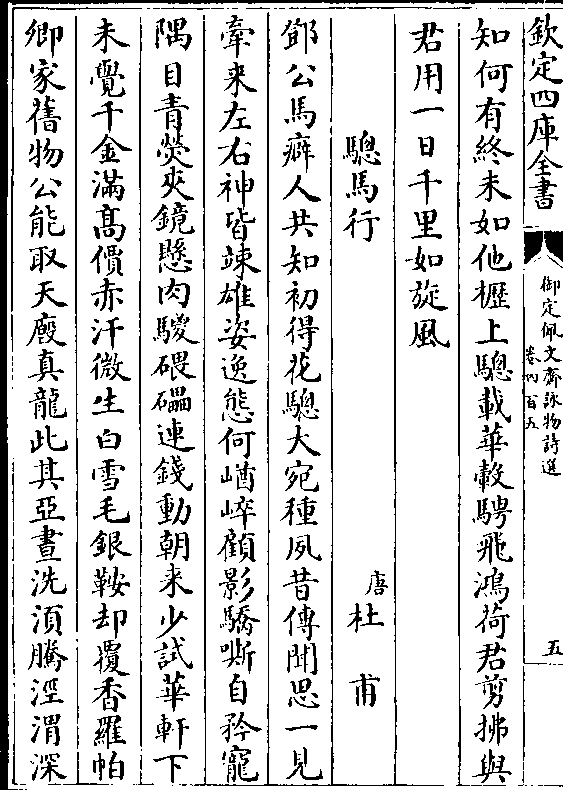 欽定四庫全書
御定佩文齋詠物詩選
卷四百五
五
知何有終未如他櫪上驄載華轂騁飛鴻荷君剪拂與
君用一日千里如旋風
驄馬行
唐杜甫
鄧公馬癖人共知初得花驄大宛種夙昔傳聞思一見
牽来左右神皆竦雄姿逸態何崷崒顧影驕嘶自矜寵
隅目青熒夾鏡懸肉騣碨礧連錢動朝来少試華軒下
未覺千金滿髙價赤汗微生白雪毛銀鞍却覆香羅帕
卿家舊物公能取天廐真龍此其亞晝洗湏騰涇渭深